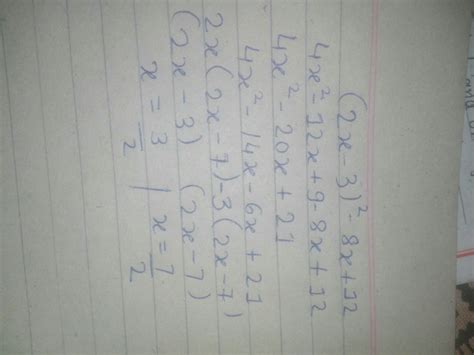 (2x - 3)² - 8x + 12
4x² - 12x + 9 - 8x + 12
4x² - 20x + 21
4x² - 14x - 6x + 21
2x (2x - 7) - 3 (2x - 7)
(2x - 3) (2x - 7)
x = 3/2 | x = 7/2